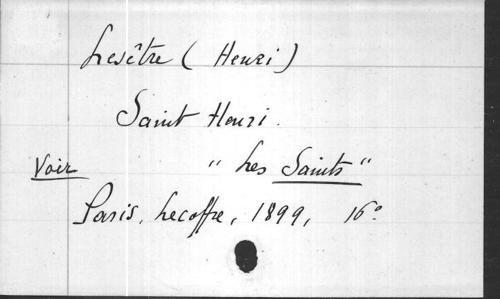 Lesêtre (Henri)
Saint Henri.
Voir " Les Saints "
Paris, Lecoffre, 1899, 16°